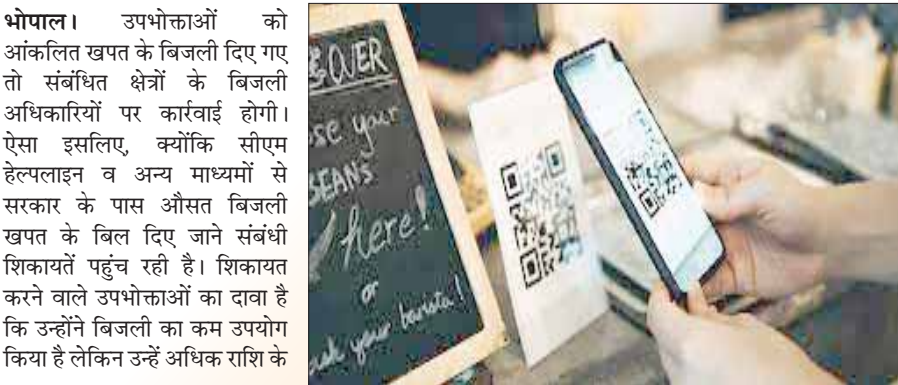 भोपाल। उपभोक्ताओं को
आंकलित खपत के बिजली दिए गए
तो संबंधित क्षेत्रों के बिजली
अधिकारियों पर कार्रवाई होगी।
ऐसा इसलिए, क्योंकि सीएम
हेल्पलाइन व अन्य माध्यमों से
सरकार के पास औसत बिजली
खपत के बिल दिए जाने संबंधी
शिकायतें पहुंच रही है। शिकायत
करने वाले उपभोक्ताओं का दावा है
कि उन्होंने बिजली का कम उपयोग
किया है लेकिन उन्हें अधिक राशि के
OVER
your
BEANS
here!
or
ask your barista!